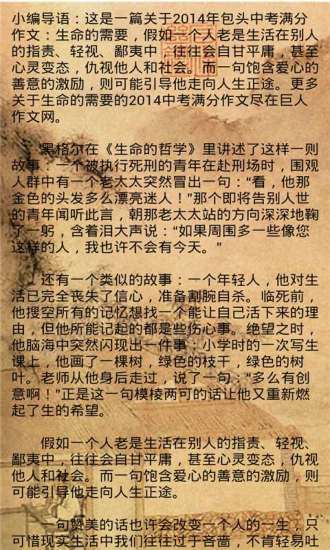 小编导语：这是一篇关于2014年包头中考满分
作文：生命的需要，假如一个人老是生活在别人
的指责、轻视、鄙夷中，往往会自甘平庸，甚至
心灵变态，仇视他人和社会。而一句饱含爱心的
善意的激励，则可能引导他走向人生正途。更多
关于生命的需要的2014中考满分作文尽在巨人
作文网。
黑格尔在《生命的哲学》里讲述了这样一则
故事：一个被执行死刑的青年在赴刑场时，围观
人群中有一个老太太突然冒出一句：“看，他那
金色的头发多么漂亮迷人！”那个即将告别人世
的青年闻听此言，朝那老太太站的方向深深地鞠
了一躬，含着泪大声说：“如果周围多一些像您
这样的人，我也许不会有今天。”
还有一个类似的故事：一个年轻人，他对生
活已完全丧失了信心，准备割腕自杀。临死前，
他搜空所有的记忆想找一个能让自己活下来的理
由，但他所能记起的都是些伤心事。绝望之时，
他脑海中突然闪现出一件事：小学时的一次写生
课上，他画了一棵树，绿色的枝干，绿色的树
叶。老师从他身后走过，说了一句：“多么有创
意啊！”正是这一句模棱两可的话让他又重新燃
起了生的希望。
假如一个人老是生活在别人的指责、轻视、
鄙夷中，往往会自甘平庸，甚至心灵变态，仇视
他人和社会。而一句饱含爱心的善意的激励，则
可能引导他走向人生正途。
一句赞美的话也许会改变一个人的一生，只
可惜现实生活中我们往往过于吝啬，不肯轻易吐